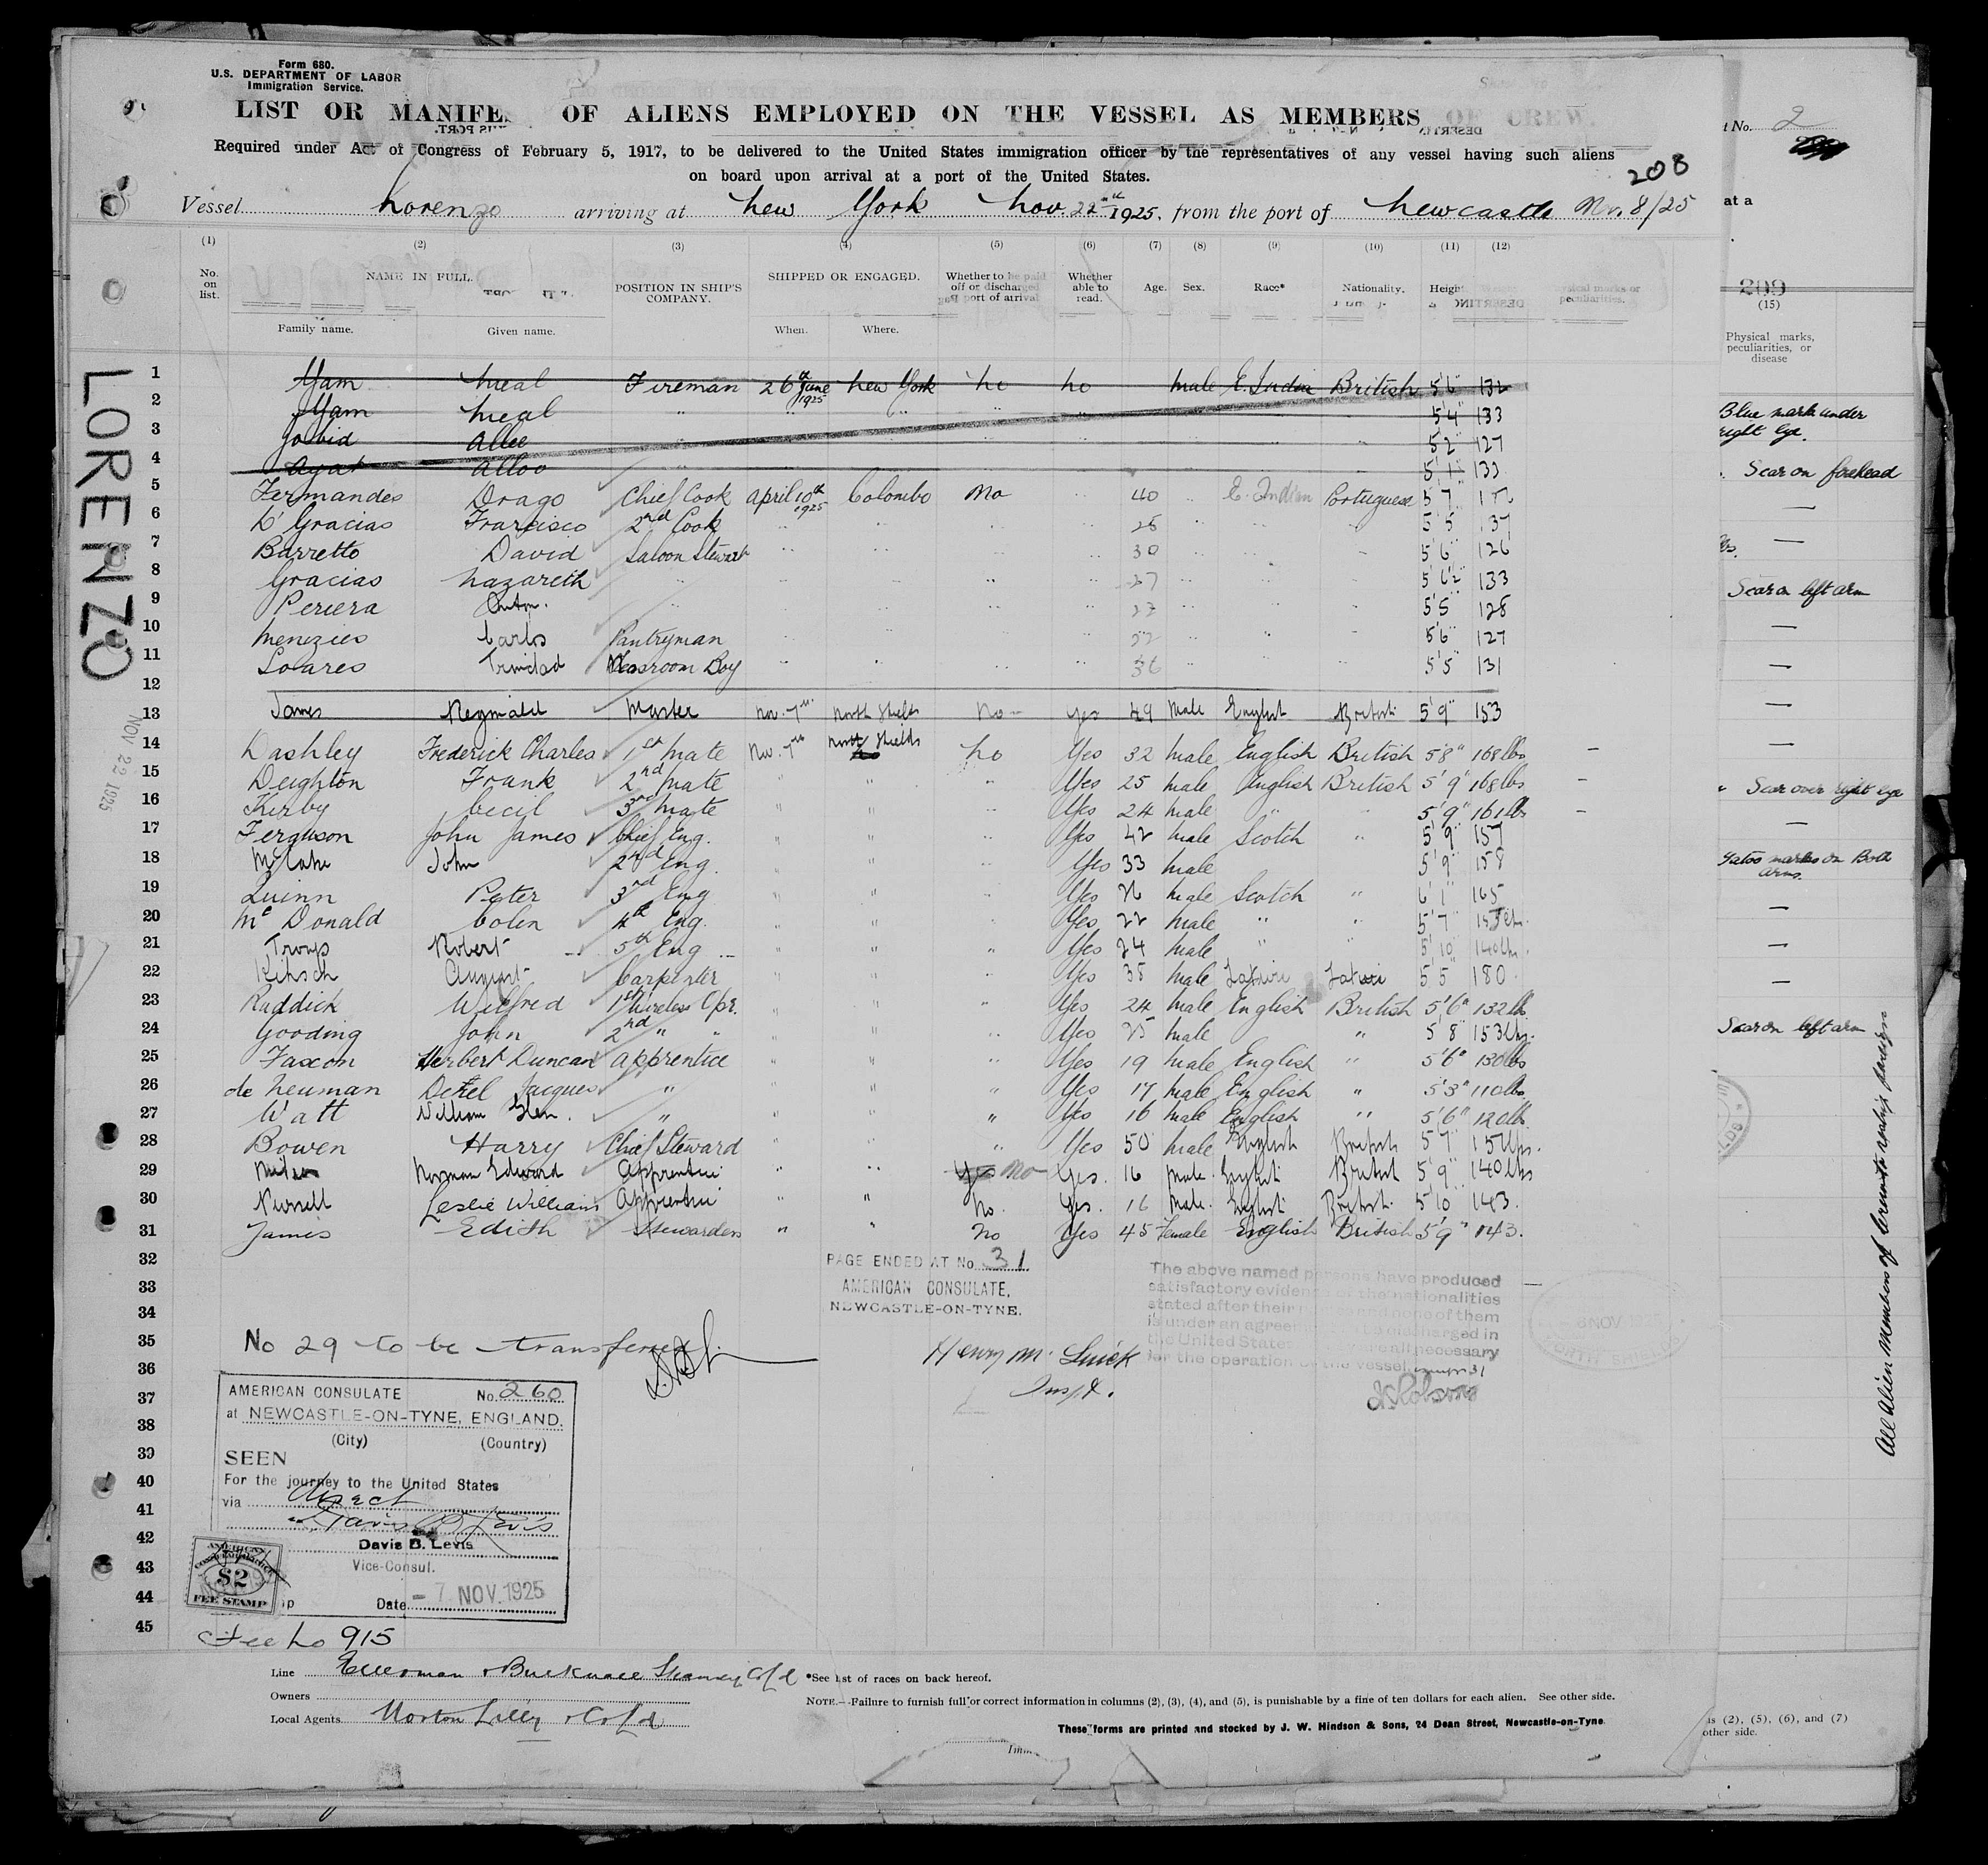 Form 680.
U.S. DEPARTMENT OF LABOR
Immigration Service.
LIST OR MANIFES OF ALIENS EMPLOYED ON THE VESSEL AS MEMBERS OF CREW.
Required under Act of Congress of February 5, 1917, to be delivered to the United States immigration officer by the representatives of any vessel having such aliens
on board upon arrival at a port of the United States.
208
Vessel Lorenzo arriving at New York Nov. 22nd 1925, from the port of Newcastle Nov. 8/25
(1) (2) (3) (4) (5) (6) (7) (8) (9) (10) (11) (12)
No. on list. NAME IN FULL. POSITION IN SHIP'S COMPANY. SHIPPED OR ENGAGED. Whether to be paid off or discharged at port of arrival Whether able to read. Age. Sex. Race* Nationality. Height physical marks or peculiarities.
Family name. Given name. When. Where.
1 Yam Meal Fireman 26th June 1925 New York No No Male E. Indian British 5'6" 132
2 Yam Meal " " " " " 5'4" 133
3 Jobid Allee " 5'2" 127
4 Ayat Alloo " 133
5 Fermandes Drago Chief Cook April 10th 1925 Colombo No 40 " E. Indian Portuguese 5'7"
6 D'Gracias Francisco 2nd Cook 5'5" 137
7 Barretto David Saloon Steward 30 5'6" 126
8 Gracias Nazareth " 5'6½" 133
9 Periera Anton. " 5'5" 128
10 Menezies Carlos Pantryman 5'6" 127
11 Soares Trinidad Messroom Boy 36 5'5" 131
12
13 James Reginald Master Nov. 7th North Shields No Yes 49 Male English British 5'9" 153
14 Dashley Frederick Charles 1st Mate Nov. 7th North Shields No Yes 32 Male English British 5'8" 168 lbs
15 Deighton Frank 2nd Mate " " " Yes 25 Male English British 5'9" 168 lbs
16 Kirby Cecil 3rd Mate " " " Yes 24 Male " " 5'9" 161 lbs
17 Ferguson John James Chief Eng. " " " Yes 42 Male Scotch " 5'9" 157
18 John 2nd Eng. " " " Yes 33 Male 5'9" 158
19 Quinn Peter 3rd Eng " " " Yes 26 Male Scotch " 6'1" 165
20 McDonald Colin 4th Eng. " " " Yes 22 Male " " 5'7"
21 Robert 5th Eng " " " Yes 24 Male " " 5'10" 140 lbs.
22 August Carpenter " " " Yes 38 Male 5'5" 180
23 Ruddick Wilfred 1st Wireless Opr. " " " Yes 24 Male English British 5'6" 132 lbs
24 Gooding John 2nd " " " " " Yes 25 Male " 5'8" 153 lbs.
25 Faxon Herbert Duncan Apprentice " " " Yes 19 Male English " 5'6" 130 lbs
26 de Neuman Jacques " " " Yes 17 Male English " 5'3" 110 lbs.
27 Watt William Glen. " " " " Yes 16 Male English " 5'6" 120 lbs.
28 Bowen Harry Chief Steward " " Yes 50 Male English British 5'7"
29 Norman Edward Apprentice " " Yes No Yes. 16 Male. English British 5'9" 140 lbs
30 Leslie William Apprentice " " No. Yes. 16 Male. English British. 5'10 143.
31 James Edith Stewardess " " No Yes 45 Female English British 5'9" 143.
32
33
34
35
36
37
38
39
40
41
42
43
44
45
PAGE ENDED AT No. 31
AMERICAN CONSULATE,
NEWCASTLE-ON-TYNE.
The above named persons have produced
satisfactory evidence of the nationalities
stated after their names and none of them
is under an agreement to be discharged in
the United States all necessary
for the operation of the vessel
No 29 to be transferred
Henry M. Quick
Inspt.
AMERICAN CONSULATE No. 260
at NEWCASTLE-ON-TYNE, ENGLAND.
(City) (Country)
SEEN
For the journey to the United States
via direct
Davis B. Levis
Davis B. Levis
Vice-Consul.
Date - 7 NOV. 1925
$2
FEE STAMP
Fee No 915
Line Ellerman & Bucknall Steamship Co Ld
Owners
Local Agents Morton Lilly & Co Ld
*See list of races on back hereof.
NOTE.—Failure to furnish full or correct information in columns (2), (3), (4), and (5), is punishable by a fine of ten dollars for each alien. See other side.
These forms are printed and stocked by J. W. Hindson & Sons, 24 Dean Street, Newcastle-on-Tyne.
LORENZO
NOV 22 1925
t No. 2
at a
209
(15)
Physical marks, peculiarities, or disease
Blue mark under
right eye.
Scar on forehead
Scar on left arm
Scar over right eye
Tatoo marks on Both
arms.
Scar on left arm
All Alien Members of Crew to reship foreign
ns (2), (5), (6), and (7)
other side.